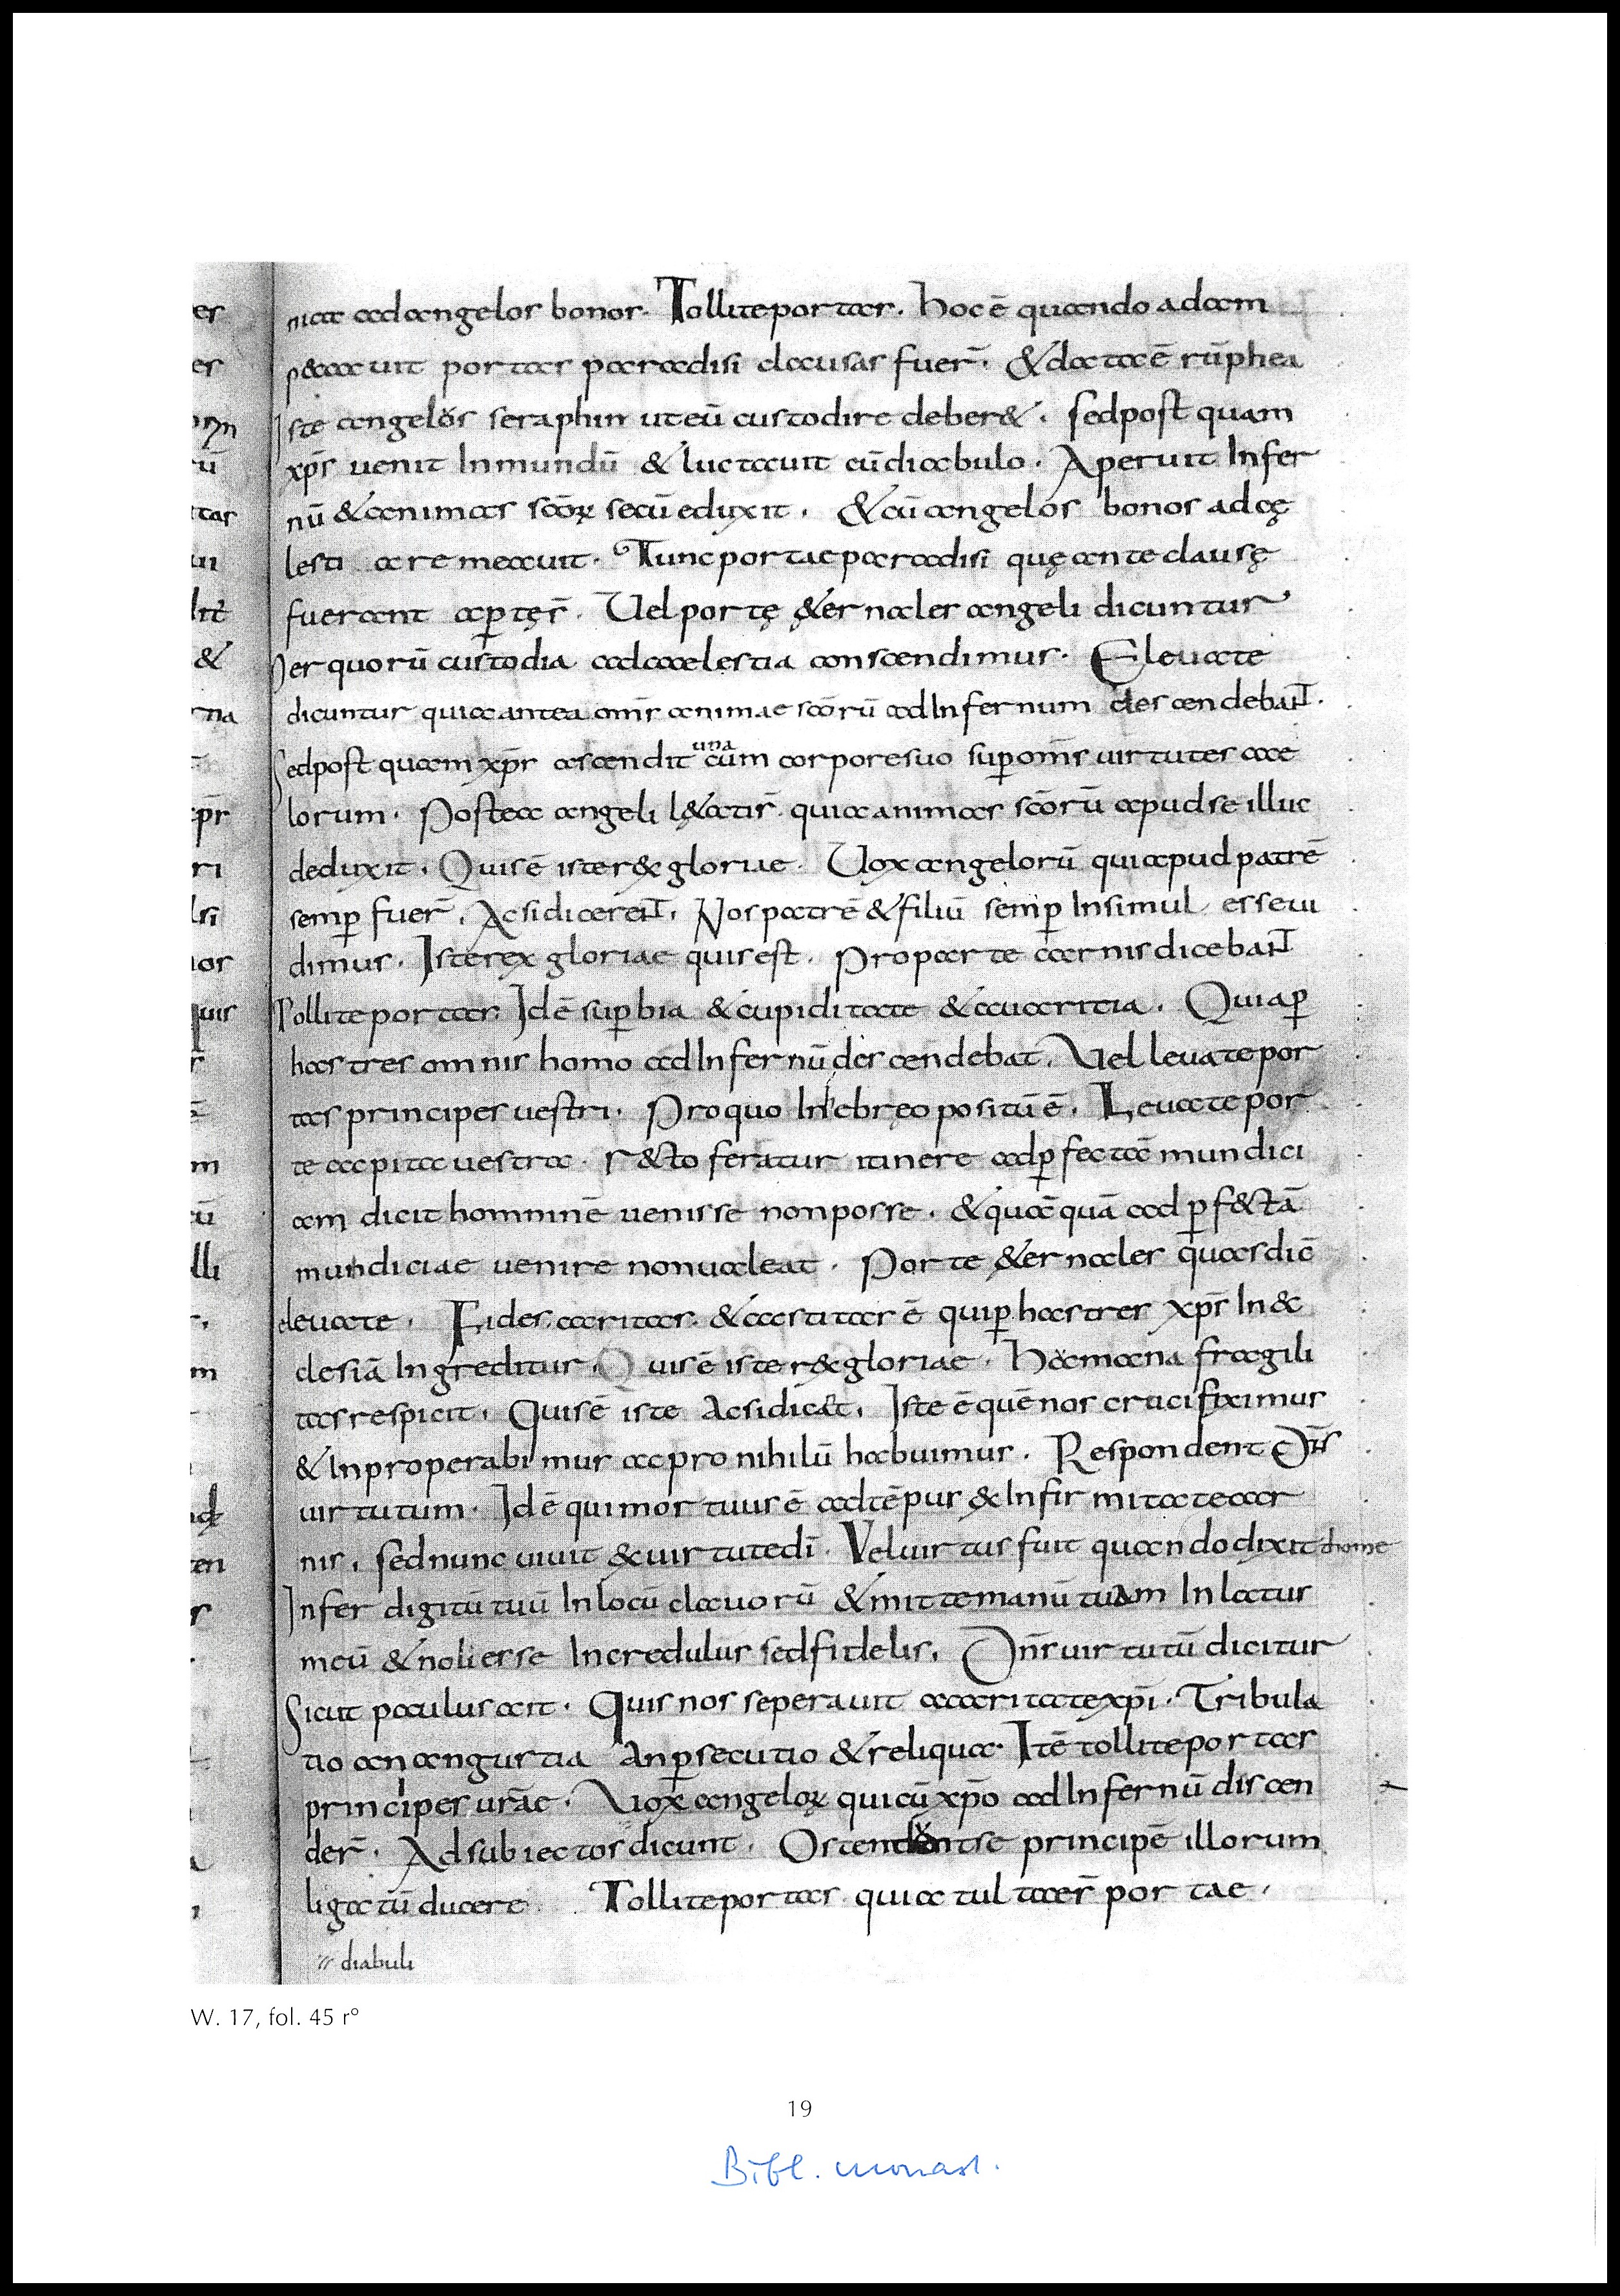 nica ad angelos bonos. Tollite portas. hoc ē quando adam
p&cauit portas paradisi clausas fuer̄. & data ē rūphea
Iste angelos seraphin ut eū custodire deber&. sed post quam
xp̄s uenit In mundū & luctauit cū diabulo. Aperuit Infer
nū & animas sc̄oꝝ secū eduxit. & cū angelos bonos ad cę
lestia remeauit. Tunc portae paradisi quę ante clausę
fuerant aꝑtę s̄. Uel portę &ernales angeli dicuntur
Per quorū custodia ad caelestia conscendimus. Eleuate
dicuntur quia antea om̄s animae sc̄orū ad Infernum descendebant.
Sed post quam xp̄s ascendit una cum corpore suo suꝑ om̄s uirtutes cae
lorum. Postea angeli l&ati s̄. quia animas sc̄orū apud se illuc
deduxit. Quis ē iste rex gloriae. Uox angelorū qui apud patrē
semꝑ fuer̄. Ac si dicerent. Nos patrē & filiū semꝑ Insimul esse ui
dimus. Iste rex gloriae quis est. Pro parte carnis dicebant
Tollite portas. Id ē suꝑbia & cupiditate & auaritia. Quia ꝑ
has tres omnis homo ad Infernū descendebat. Uel leuate por
tas principes uestri. Pro quo In ebręo positū ē. Leuate por
te capita uestra. r&to feratur itinere ad ꝑfectā mundici
am dicit hominē uenisse non posse. & quā quā ad ꝑf&tā
mundiciae uenire non ualeat. Porte &ernales quas dic̄
eleuate. Fides. caritas. & castitas ē qui ꝑ has tres xp̄s In ec
clesiā Ingreditur. Quis ē iste rex gloriae. humana fragili
tas respicit. Quis ē iste Ac si dicat. Iste ē quē nos crucifiximus
& Inproperabimus ac pro nihilū habuimus. Respondent Dn̄s
uirtutum. Id ē qui mortuus ē ad tēpus & Infirmitate car
nis, sed nunc uiuit & uirtute dī. Vel uirtus fuit quando dixit thome
Infer digitū tuū In locū clauorū & mitte manū tuam In latus
meū & noli esse Incredulus sed fidelis. Dn̄s uirtutū dicitur
Sicut paulus ait. Quis nos seperauit a caritate xp̄i. Tribula
tio an angustia an ꝑsecutio & reliqua. Itē tollite portas
principes ur̄ae. Uox angeloꝝ qui cū xp̄o ad Infernū discen
der̄. Ad subiectos dicunt. Ostendont se principē illorum
ligatū ducere. Tollite portas quia tultae s̄ portae.
diabuli
W. 17, fol. 45 rº
19
Bibl. monast.